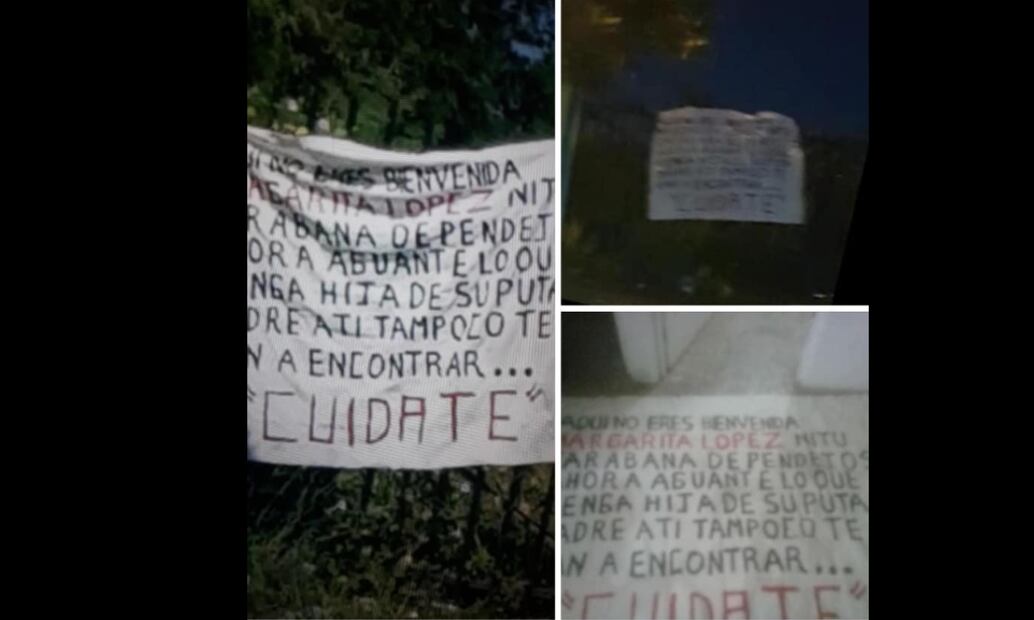 UI NO ERES BIENVENIDA
ARGARITA LOPEZ NITU
RABANA DE PENDEJ
ORA AGUANTE LO QU
NGA HIJA DE SU PUTA
DRE A TI TAMPOCO TE
N A ENCONTRAR...
"CUIDATE"
CUIDATE
AQUI NO ERES BIENVENIDA
MARGARITA LOPEZ NI TU
ARABANA DE PENDEJOS
HORA AGUANTE LO QUE
ENGA HIJA DE SU PUTA
ADRE A TI TAMPOCO TE
AN A ENCONTRAR...
"CUIDATE"